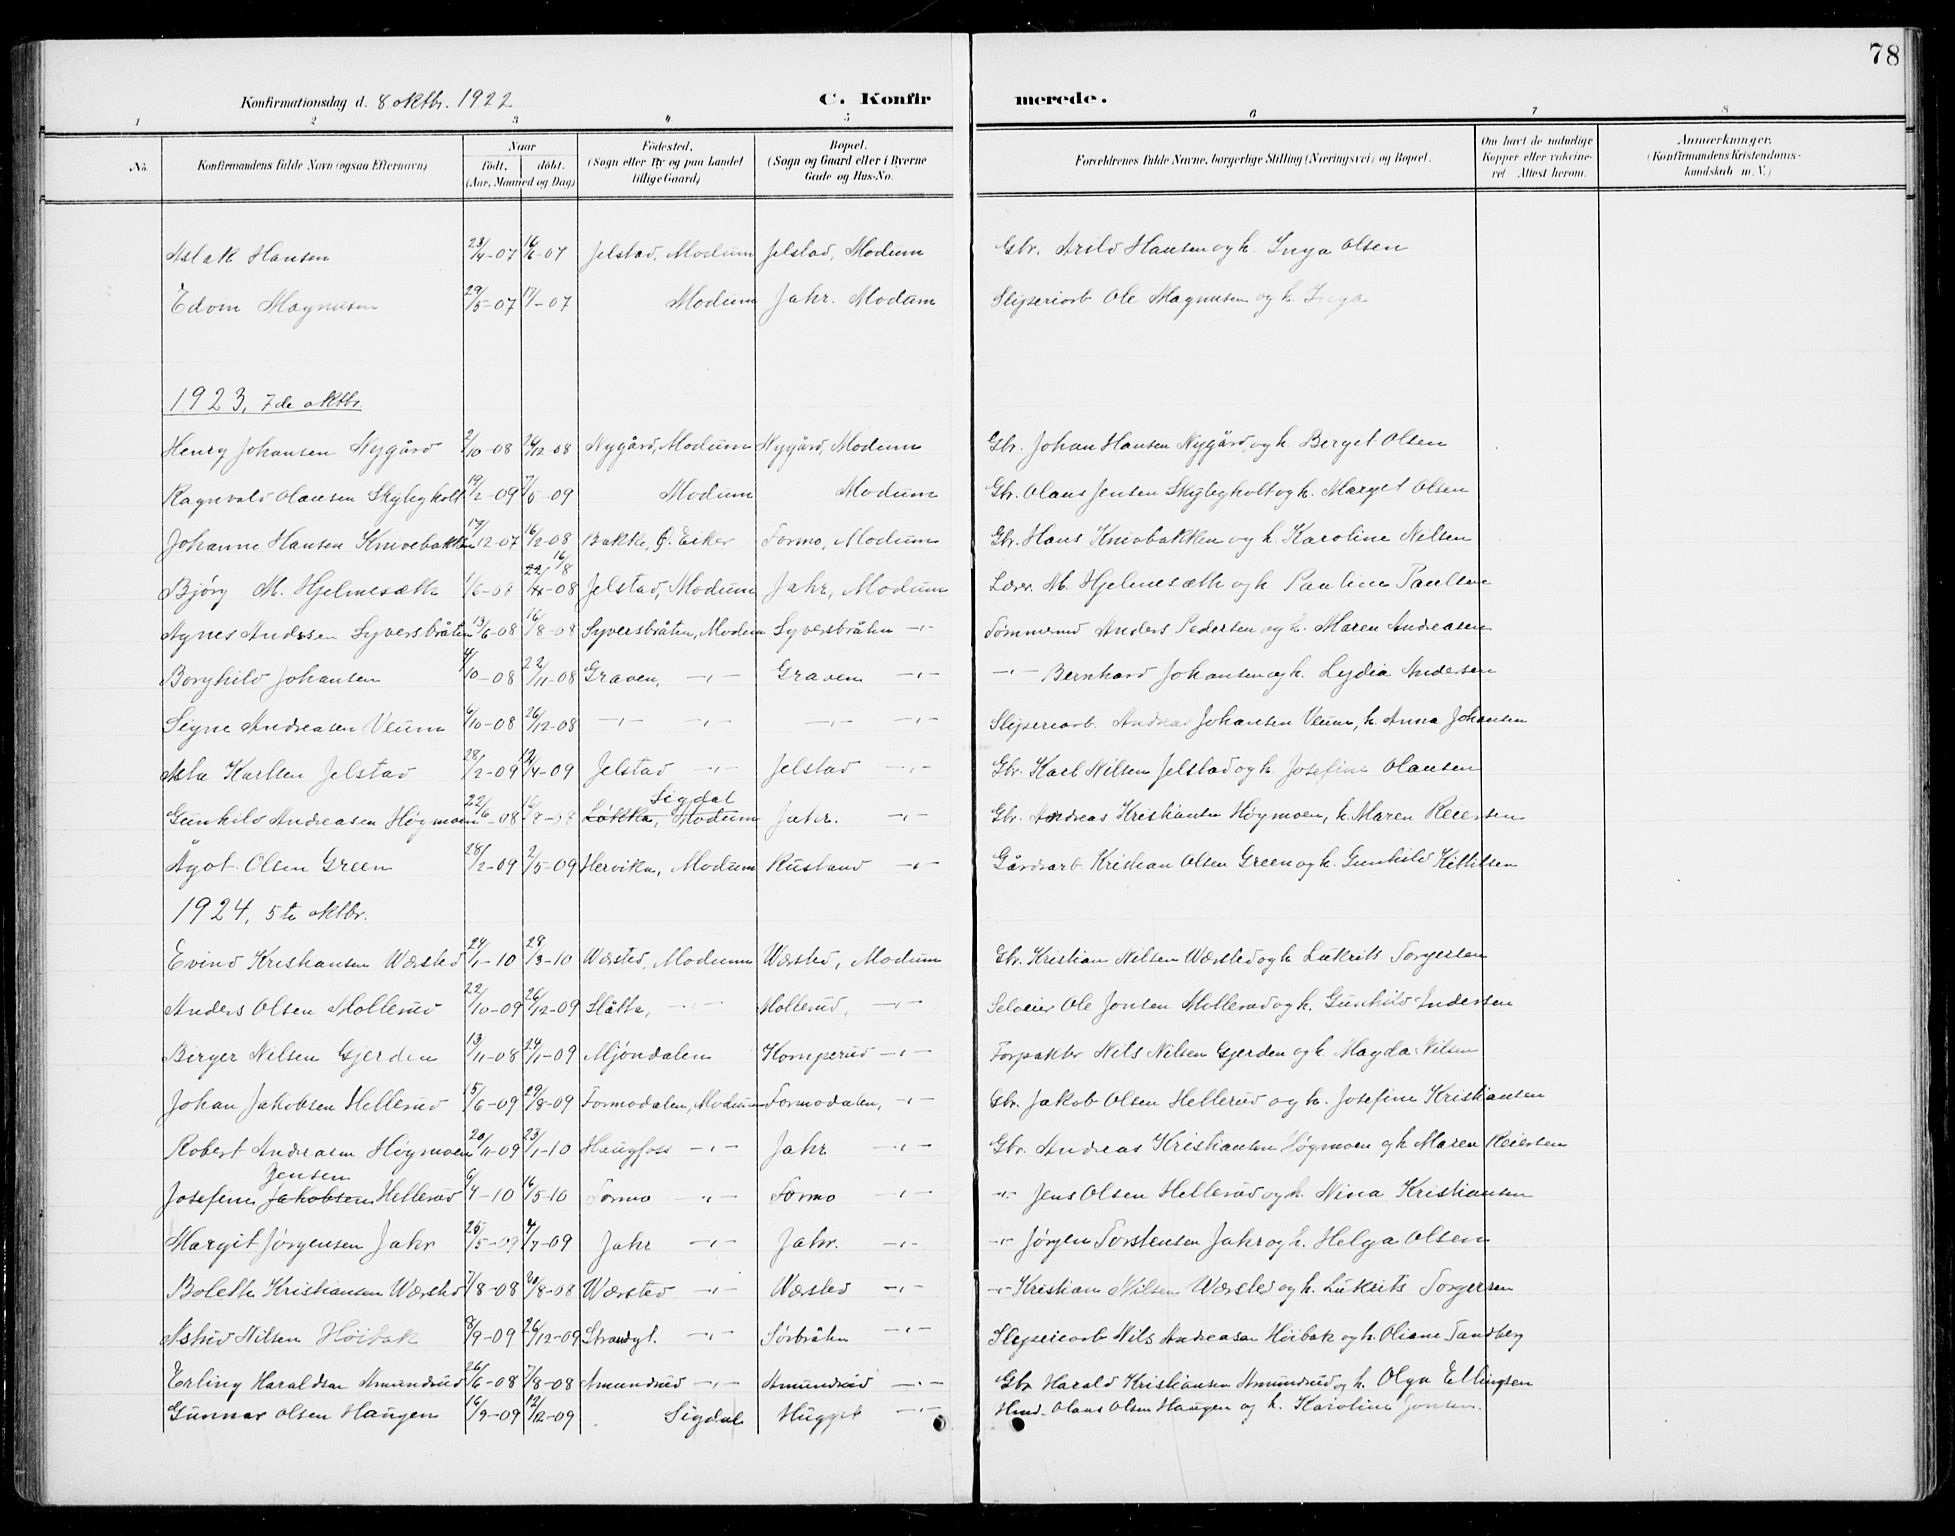 78
Konfirmationsdag d. 8 oktbr. 1922 C. Konfirmerede.
1 2 3 4 5 6 7 8
No. Konfirmandens fulde Navn (ogsaa Efternavn) Naar født. døbt. (Aar, Maaned og Dag) Fødested. (Sogn eller By og paa Landet tillige Gaard) Bopæl. (Sogn og Gaard eller i Byerne Gade og Hus-No. Forældrenes fulde Navne, borgerlige Stilling (Næringsvei) og Bopæl. Om havt de naturlige Kopper eller vakcineret Attest herom. Anmærkninger. (Konfirmandens Kristendomskundskab m. V.)
Aslak Hansen 23/4-07 16/6-07 Jelstad, Modum Jelstad, Modum Gbr. Arild Hansen og h. Inga Olsen
Edom Magnusen 29/5-07 -07 Modum Jahr. Modum Slipseriarb Ole Magnusen og h. Inga
1923, 7de oktbr.
Henry Johansen Nygård 2/10-08 26/12-08 Nygård, Modum Nygård, Modum Gbr. Johan Hansen Nygård, og h. Berget Olsen
Ragnvald Olausen Skyligholt 19/2-09 -09 Modum Modum Gbr. Olaus Jensen Skyligholt og h. Marget Olsen
Johanne Hansen Knivebakken 17/12-07 16/2-08 Bakke, Ø. Eiker Formo, Modum Gbr. Hans Knivbakken og h. Karoline Nilsen
Bjørg M. Hjelmesæth 1/6-08 16/8-08 Jelstad, Modum Jahr, Modum Lærer M. Hjelmesæth og h Pauline Paulsen
Agnes Andersen Syversbråten 13/6-08 16/8-08 Syversbråten, Modum Syversbråten -"- Tømmermd Anders Pedersen og h. Maren Andreasen
Borghild Johansen 4/10-08 22/11-08 Graven, -"- Graven -"- -"- Bernhard Johansen og h. Lydia Andersen
Signe Andreasen Veum 6/10-08 26/12-08 -"- -"- -"- -"- Slipseriarb. Andreas Johansen Veum, h. Anna Johansen
Asta Karlsen Jelstad 28/2-09 12/4-09 Jelstad -"- Jelstad -"- Gbr. Karl Nilsen Jelstad og h Josefine Olausen
Gunhild Andreasen Høgmoen 22/6-08 16/8-08 Løkka, Modum Sigdal Jahr. -"- Gbr. Andreas Kristiansen Høgmoen, h. Maren Reiersen
Ågot Olsen Green 28/2-09 2/5-09 Hervika, Modum Rustand -"- Gårdsarb. Kristian Olsen Green og h. Gunhild Kittilsen
1924, 5te oktbr.
Evind Kristiansen Wærsted 24/1-10 28/3-10 Wærsted, Modum Wærsted, Modum Gbr. Kristian Nilsen Wærsted og h Lukrits Torgersen
Anders Olsen Mollerud 22/10-09 26/12-09 Slåtta, -"- Mollerud, -"- Selveier Ole Jonsen Mollerud og h. Gunhild Andersen
Birger Nilsen Gjerden 13/11-08 24/1-09 Mjøndalen Komperud -"- Forpakter Nils Nilsen Gjerden og h. Magda Nilsen
Johan Jakobsen Hellerud 15/6-09 29/8-09 Formodalen, Modum Formodalen, -"- Gbr. Jakob Olsen Hellerud og h. Josefine Kristiansen
Robert Andreasen Høgmoen 20/11-09 23/1-10 Haugfoss -"- Jahr -"- Gbr. Andreas Kristiansen Høgmoen og h Maren Reiersen
Josefine Jakobsen Jensen Hellerud 6/4-10 16/5-10 Formo -"- Formo -"- -"- Jens Olsen Hellerud og h. Nina Kristiansen
Margit Jørgensen Jahr 25/5-09 4/7-09 Jahr -"- Jahr. -"- -"- Jørgen Torstensen Jahr og h. Helga Olsen
Bolette Kristiansen Wærsted 7/8-08 20/8-08 Wærsted -"- Wærsted -"- -"- Kristian Nilsen Wærsted og h. Lukrits Torgersen
Astrid Nilsen Höibak 8/9-09 26/12-09 Strandgt. -"- Sørbråten -"- Slipseriarb Nils Andreasen Höibak og h. Oliane Tandberg
Erling Haraldsen Amundrud 26/6-08 7/8-08 Amundrud -"- Amundrud -"- Gbr Harald Kristiansen Amundrud og h. Olga Ellingsen
Gunnar Olsen Haugen 16/9-09 12/12-09 Sigdal Hugget -"- Hmd. Olaus Olsen Haugen og h. Karoline Jonsen.